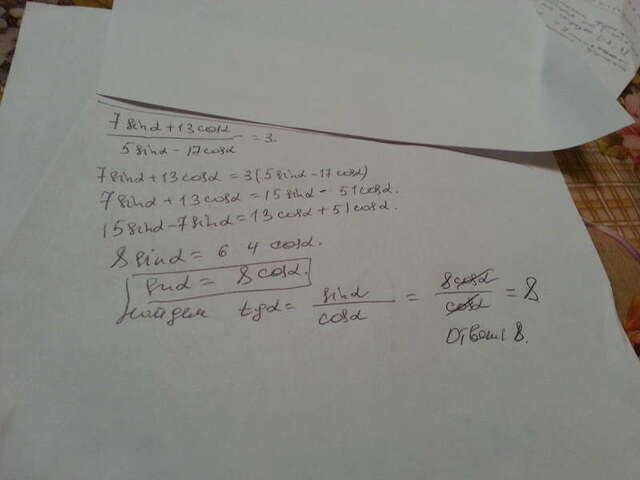 7sinα + 13cosα / 5sinα - 17cosα = 3.
7sinα + 13cosα = 3(5sinα - 17cosα)
7sinα + 13cosα = 15sinα - 51cosα.
15sinα - 7sinα = 13cosα + 51cosα.
8sinα = 64cosα.
sinα = 8cosα.
Найдем tgα = sinα / cosα = 8cosα / cosα = 8
Ответ 8.